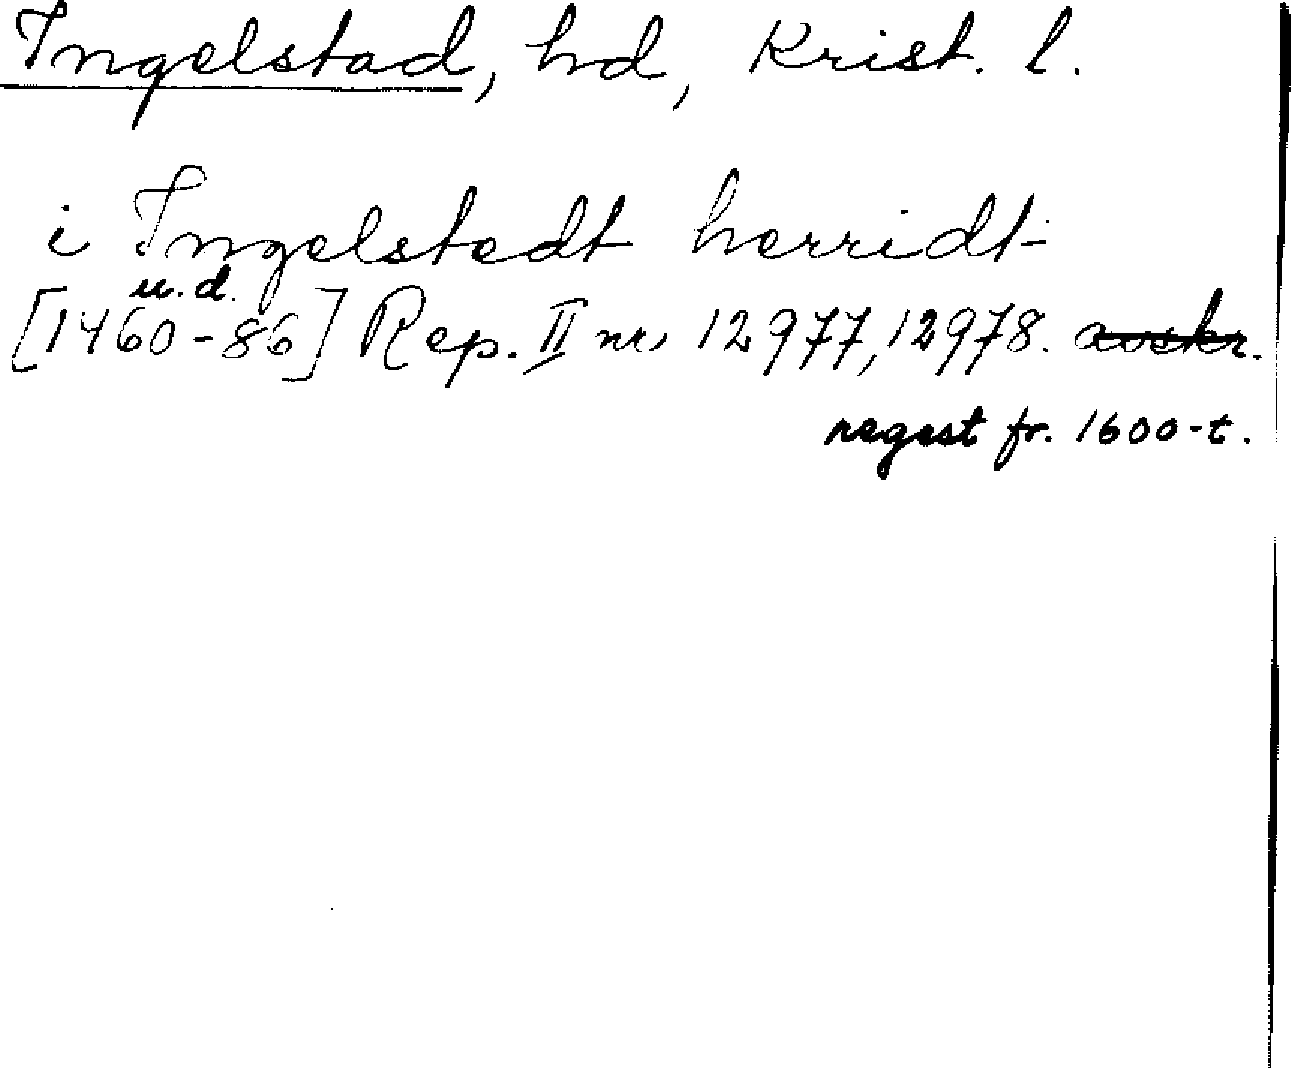 Ingelstad, hd, Krist. l.
i Ingelstedt herridt
u.d.
[1460-86] Rep. II nr 12977, 12978. avskr.
regest fr. 1600-t.